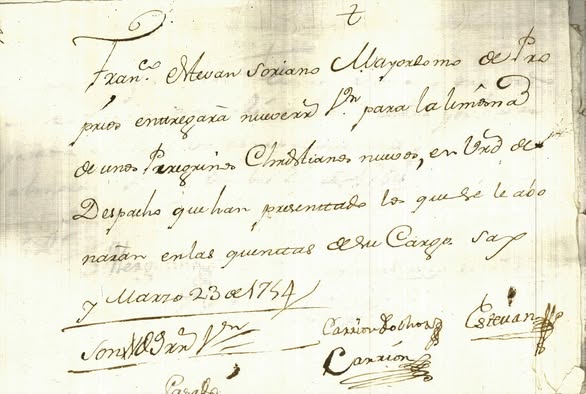 Franco. Estevan Soriano Mayordomo de Pro
prios entregará nueve rrs Vn para la limosna
de unos Peregrinos Christianos nuevos, en Vrd de
Despacho que han presenttado los que se le abo
naran en las quenttas de su Cargo
y Marzo 23 de 1754
Son 9 rrs Vn
Estevan
Carrion